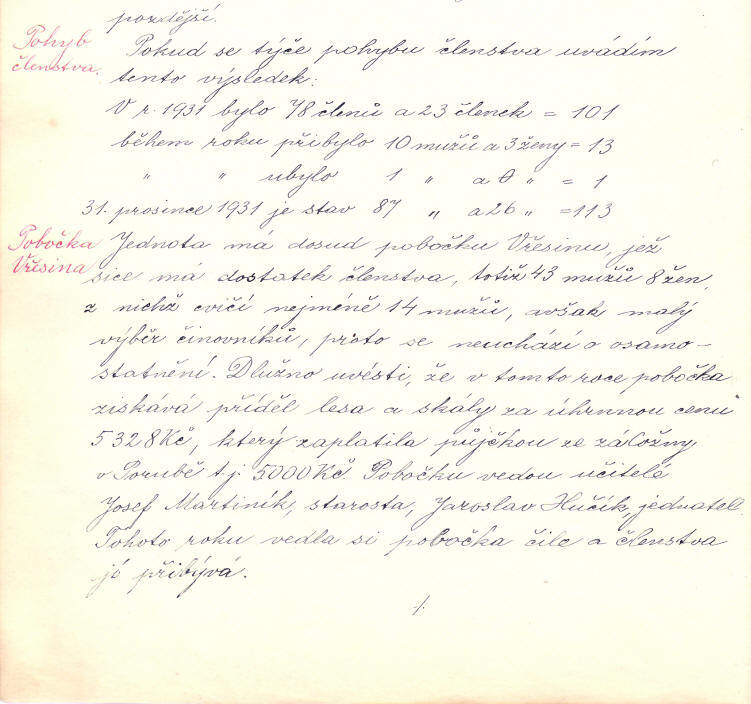 později.
Pohyb
členstva.
Pokud se týče pohybu členstva uvádím
tento výsledek:
V r. 1931 bylo 78 členů a 23 členek = 101
během roku přibylo 10 mužů a 3 ženy = 13
" " ubylo 1 " a 0 " = 1
31. prosince 1931 je stav 87 " a 26 " = 113
Pobočka
Vřesina
Jednota má dosud pobočku Vřesinu, jež
sice má dostatek členstva, totiž 43 mužů 8 žen,
z nichž cvičí nejméně 14 mužů, avšak malý
výběr činovníků, proto se neuchází o osamo-
statnění. Dlužno uvésti, že v tomto roce pobočka
získává příděl lesa a skály za úhrnnou cenu
5328 Kč, který zaplatila půjčkou ze záložny
v Porubě t.j. 5000 Kč. Pobočku vedou učitelé
Josef Martiník, starosta, Jaroslav Hučík, jednatel.
Tohoto roku vedla si pobočka čile a členstva
jí přibývá.
./.